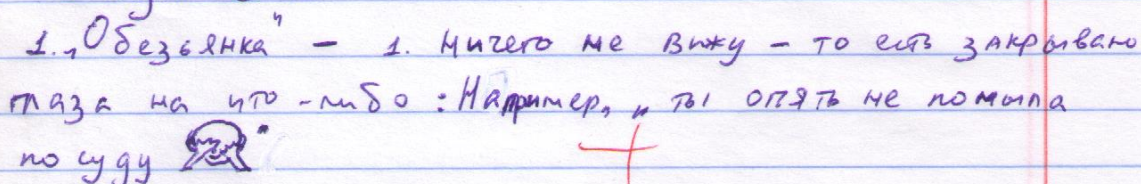 1. „Обезьянка“ – 1. Ничего не вижу – то есть закрываю
глаза на что-либо: Например, „ ты опять не помыла
посуду “